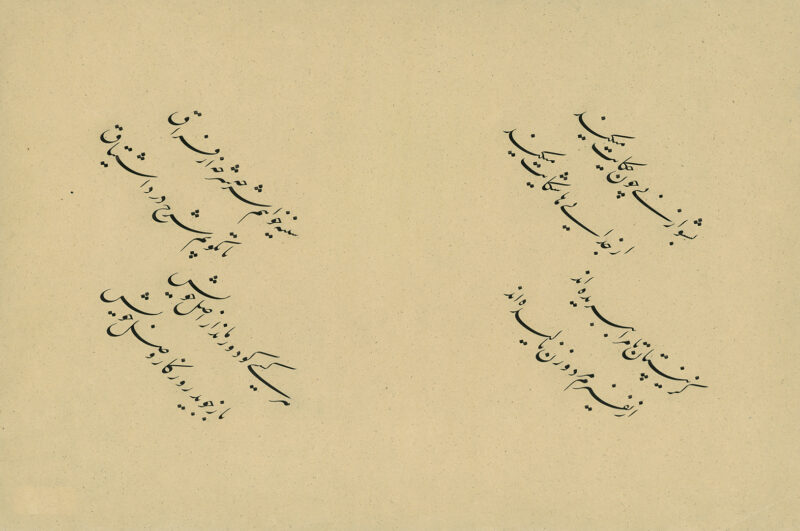 بشنو از نی چون حکایت میکند
از جدایی ها شکایت میکند
کز نیستان تا مرا ببریده اند
از نفیرم مرد و زن نالیده اند
سینه خواهم شرحه شرحه از فراق
تا بگویم شرح درد اشتیاق
هر کسی کو دور ماند از اصل خویش
باز جوید روزگار وصل خویش